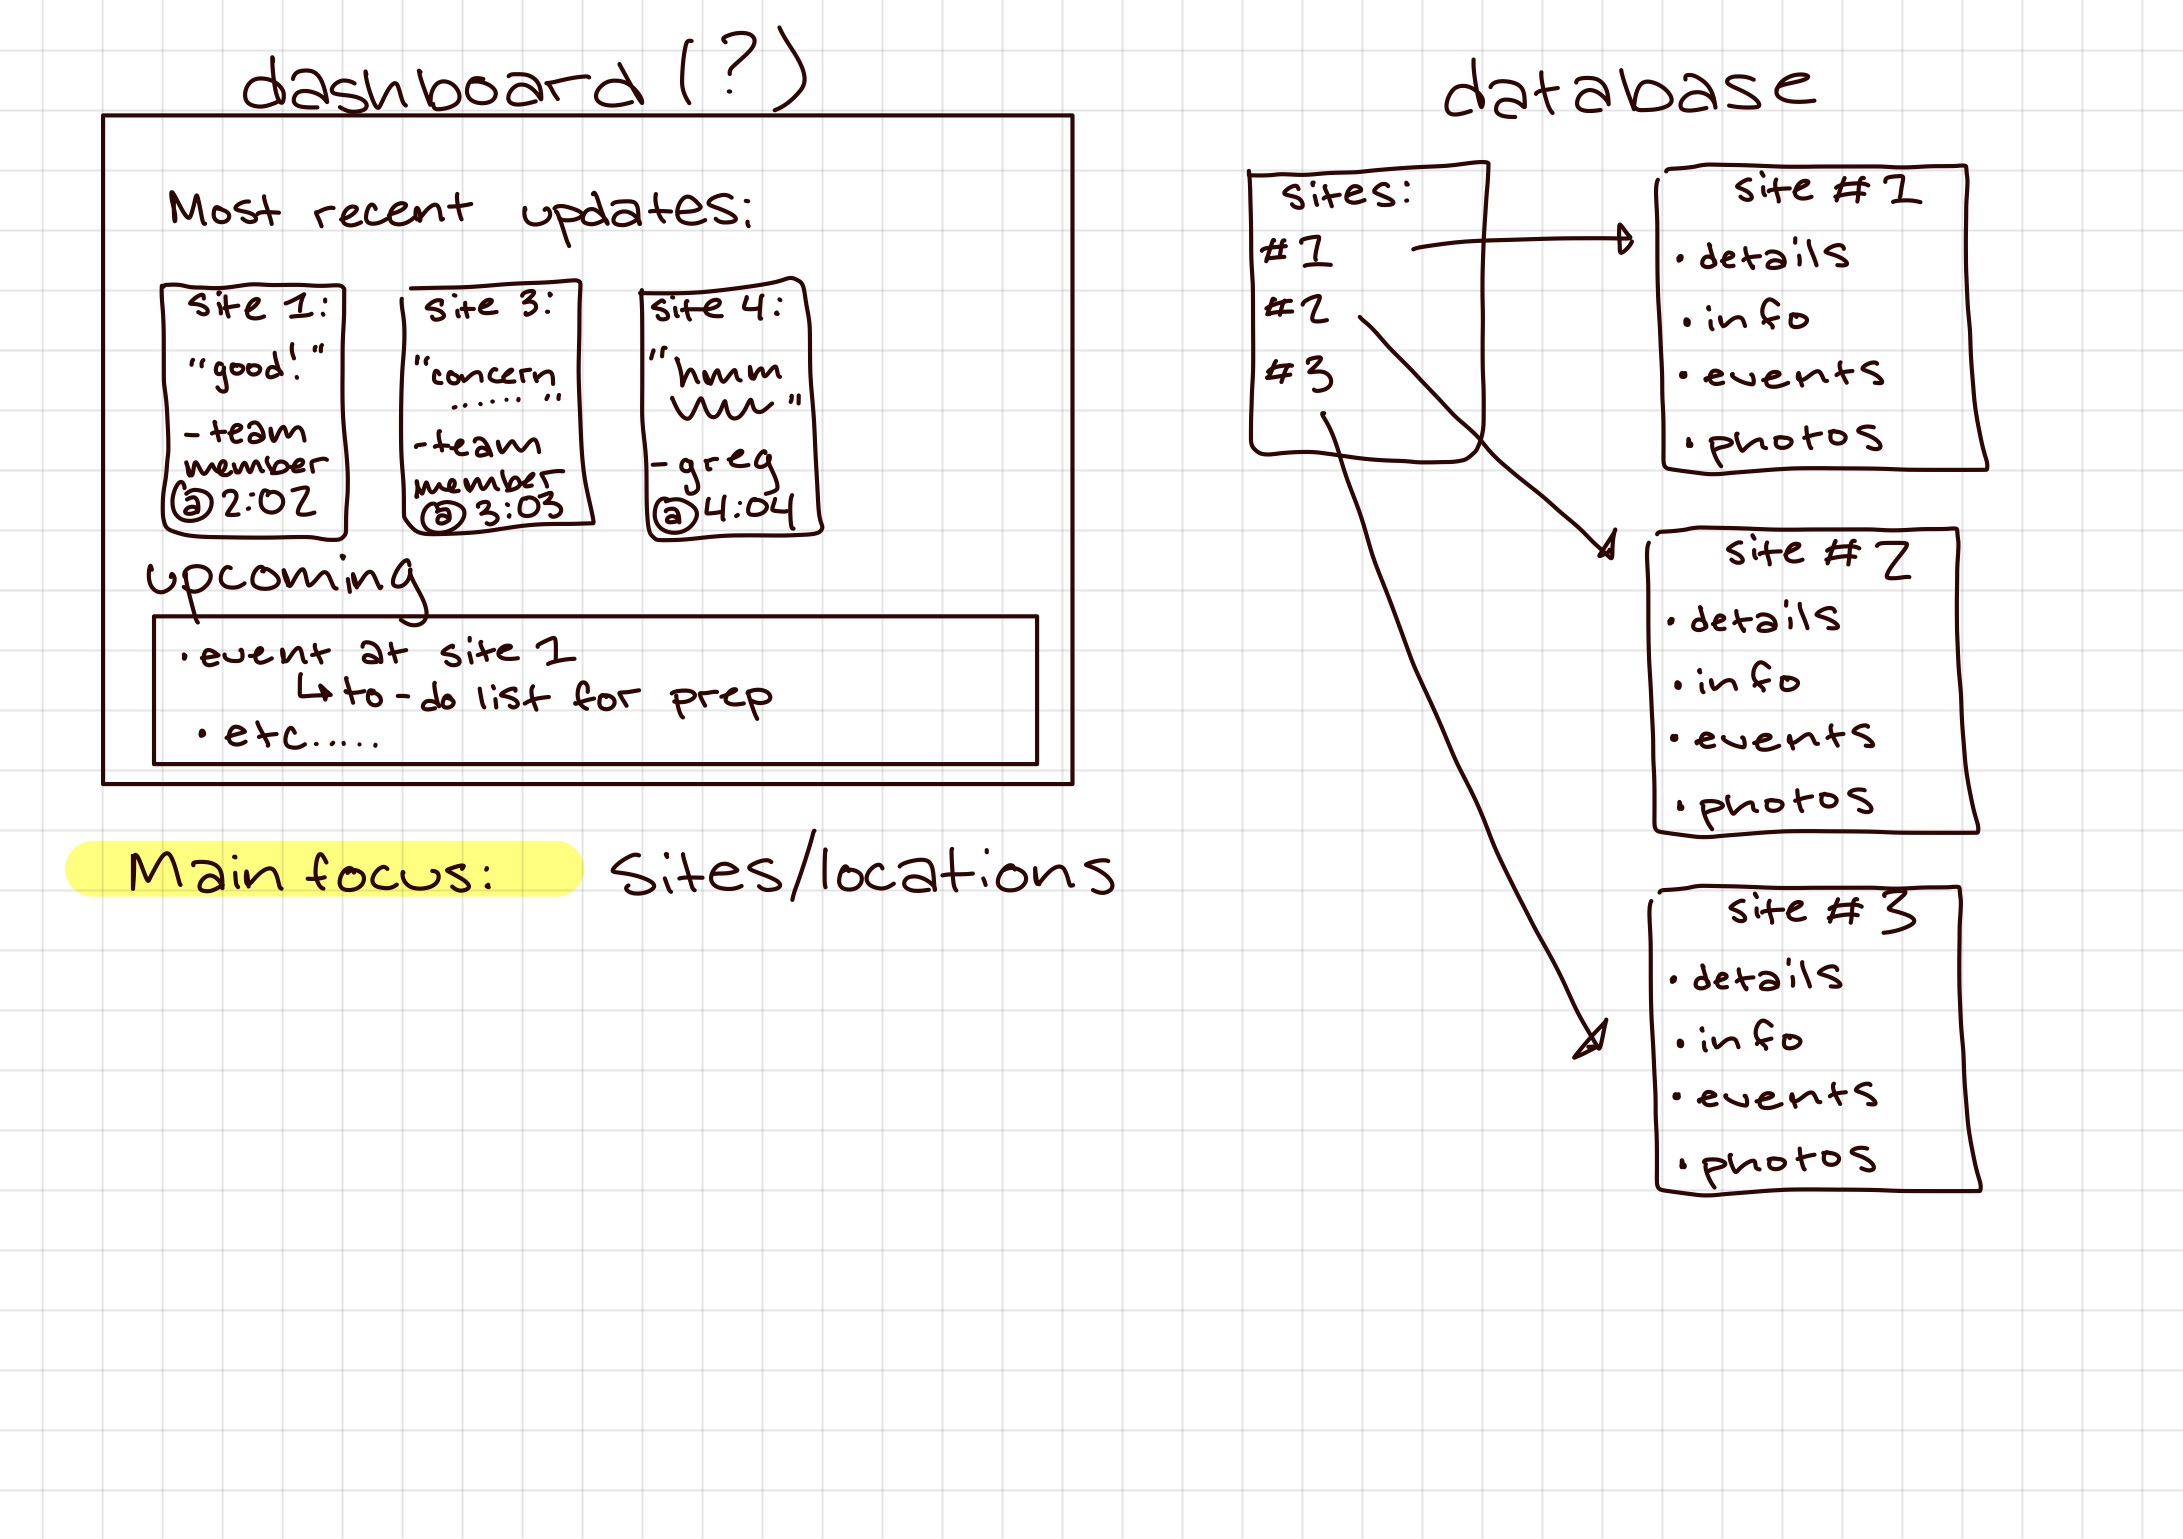 dashboard (?)
Most recent updates:
site 1:
"good!"
- team
member
@ 2:02
site 3:
"concern
......"
- team
member
@ 3:03
site 4:
"hmm
"
- greg
@ 4:04
upcoming
• event at site 1
↳ to-do list for prep
• etc.....
Main focus: Sites/locations
database
sites:
#1
#2
#3
site #1
• details
• info
• events
• photos
site #2
• details
• info
• events
• photos
site #3
• details
• info
• events
• photos